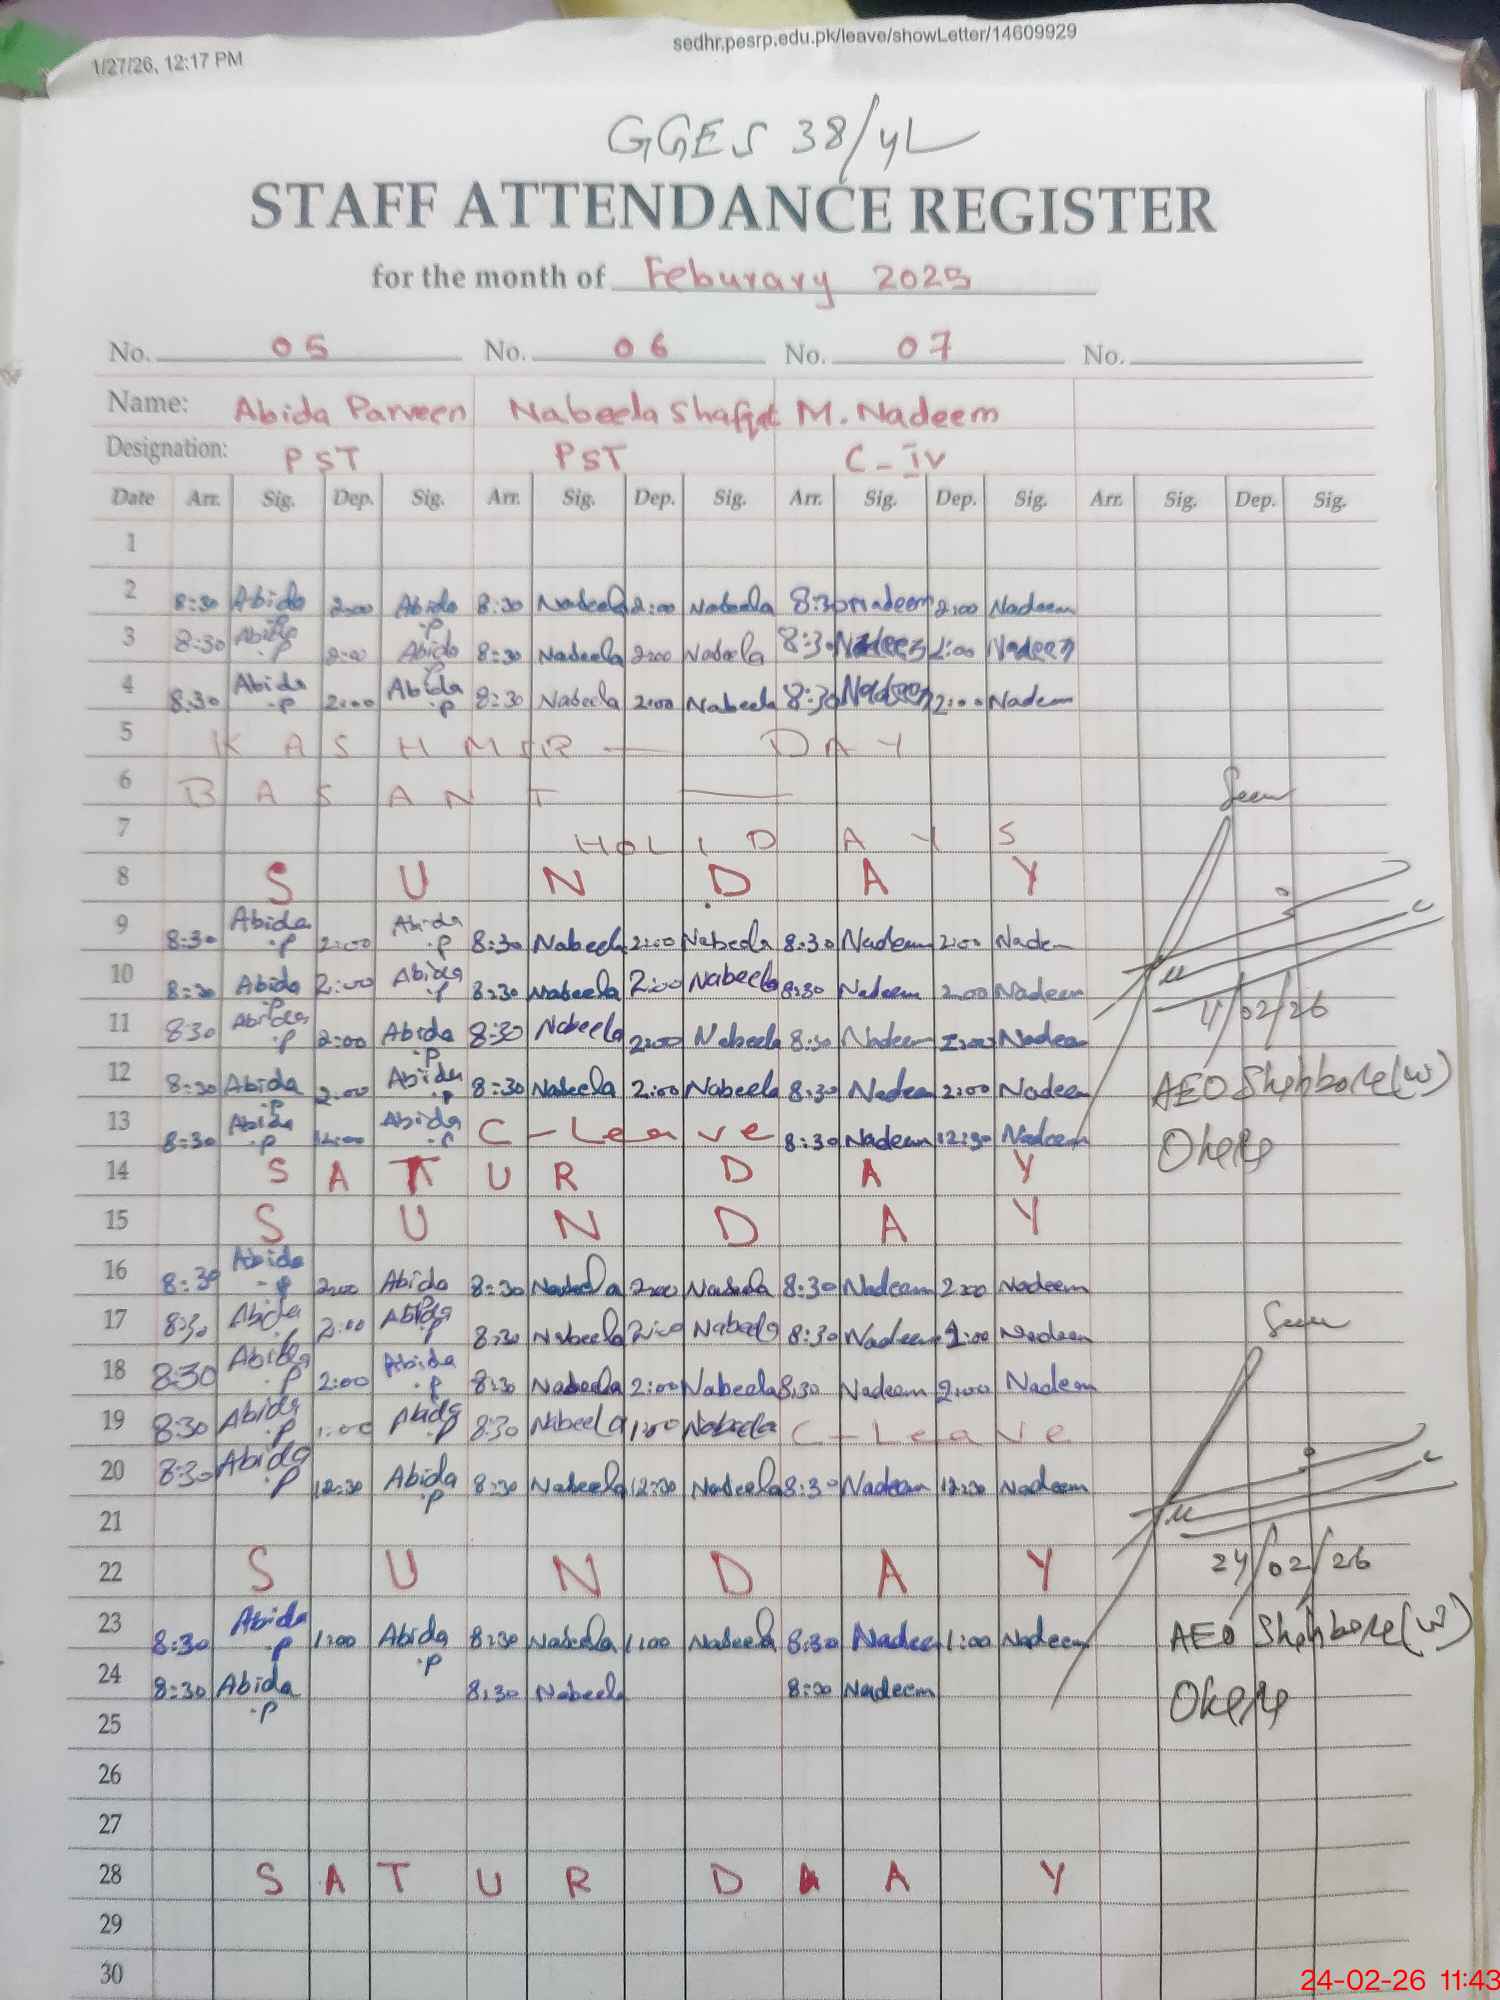 1/27/26, 12:17 PM
sedhr.pesrp.edu.pk/leave/showLetter/14609929
GGES 38/4L
STAFF ATTENDANCE REGISTER
for the month of Feburary 2025
No. 05 No. 06 No. 07 No.
Name: Abida Parveen Nabeela Shafqat M. Nadeem
Designation: PST PST C-IV
Date Arr. Sig. Dep. Sig. Arr. Sig. Dep. Sig. Arr. Sig. Dep. Sig. Arr. Sig. Dep. Sig.
1
2 8:30 Abida p 2:00 Abida p 8:30 Nabeela 2:00 Nabeela 8:30 Nadeem 2:00 Nadeem
3 8:30 Abida p 2:00 Abida p 8:30 Nabeela 2:00 Nabeela 8:30 Nadeem 2:00 Nadeem
4 8:30 Abida p 2:00 Abida p 8:30 Nabeela 2:00 Nabeela 8:30 Nadeem 2:00 Nadeem
5 KASHMIR DAY
6 BASANT
7 HOLIDAYS
Seen
8 SUNDAY
9 8:30 Abida p 2:00 Abida p 8:30 Nabeela 2:00 Nabeela 8:30 Nadeem 2:00 Nadeem
10 8:30 Abida p 2:00 Abida p 8:30 Nabeela 2:00 Nabeela 8:30 Nadeem 2:00 Nadeem
11 8:30 Abida p 2:00 Abida p 8:30 Nabeela 2:00 Nabeela 8:30 Nadeem 2:00 Nadeem
11/02/26
12 8:30 Abida p 2:00 Abida p 8:30 Nabeela 2:00 Nabeela 8:30 Nadeem 2:00 Nadeem
AEO Shahbore(W)
13 8:30 Abida p 12:00 Abida p C-Leave 8:30 Nadeem 12:30 Nadeem
Okara
14 SATURDAY
15 SUNDAY
16 8:30 Abida p 2:00 Abida 8:30 Nabeela 2:00 Nabeela 8:30 Nadeem 2:00 Nadeem
17 8:30 Abida p 2:00 Abida p 8:30 Nabeela 2:00 Nabeela 8:30 Nadeem 2:00 Nadeem
Seen
18 8:30 Abida p 2:00 Abida p 8:30 Nabeela 2:00 Nabeela 8:30 Nadeem 2:00 Nadeem
19 8:30 Abida p 1:00 Abida p 8:30 Nabeela 1:00 Nabeela C-Leave
20 8:30 Abida p 12:30 Abida p 8:30 Nabeela 12:30 Nabeela 8:30 Nadeem 12:30 Nadeem
21
22 SUNDAY
24/02/26
23 8:30 Abida p 1:00 Abida p 8:30 Nabeela 1:00 Nabeela 8:30 Nadeem 1:00 Nadeem
AEO Shahbore(W)
24 8:30 Abida p 8:30 Nabeela 8:30 Nadeem
Okara
25
26
27
28 SATURDAAY
29
30
24-02-26 11:43